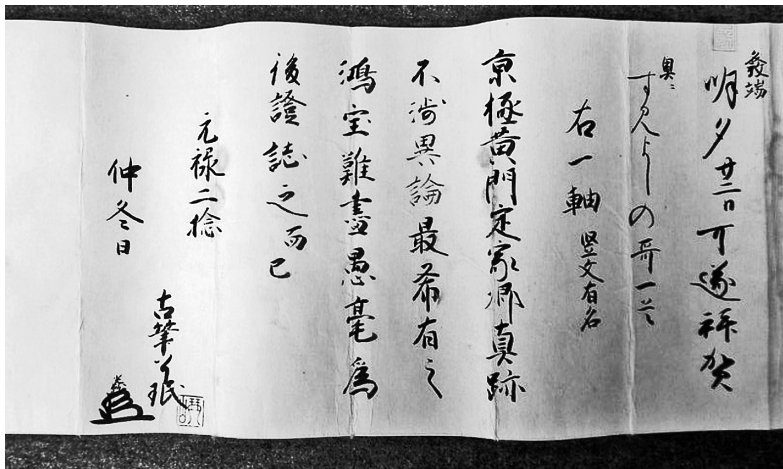 發端
明夕廿二日可遂拝賀
奥ニ
すみよしの哥一首
右一軸 竪文有名
京極黄門定家卿真跡
不渉異論最希有之
鴻宝難盡愚毫為
後證誌之而已
元禄二稔
仲冬日
古筆了珉